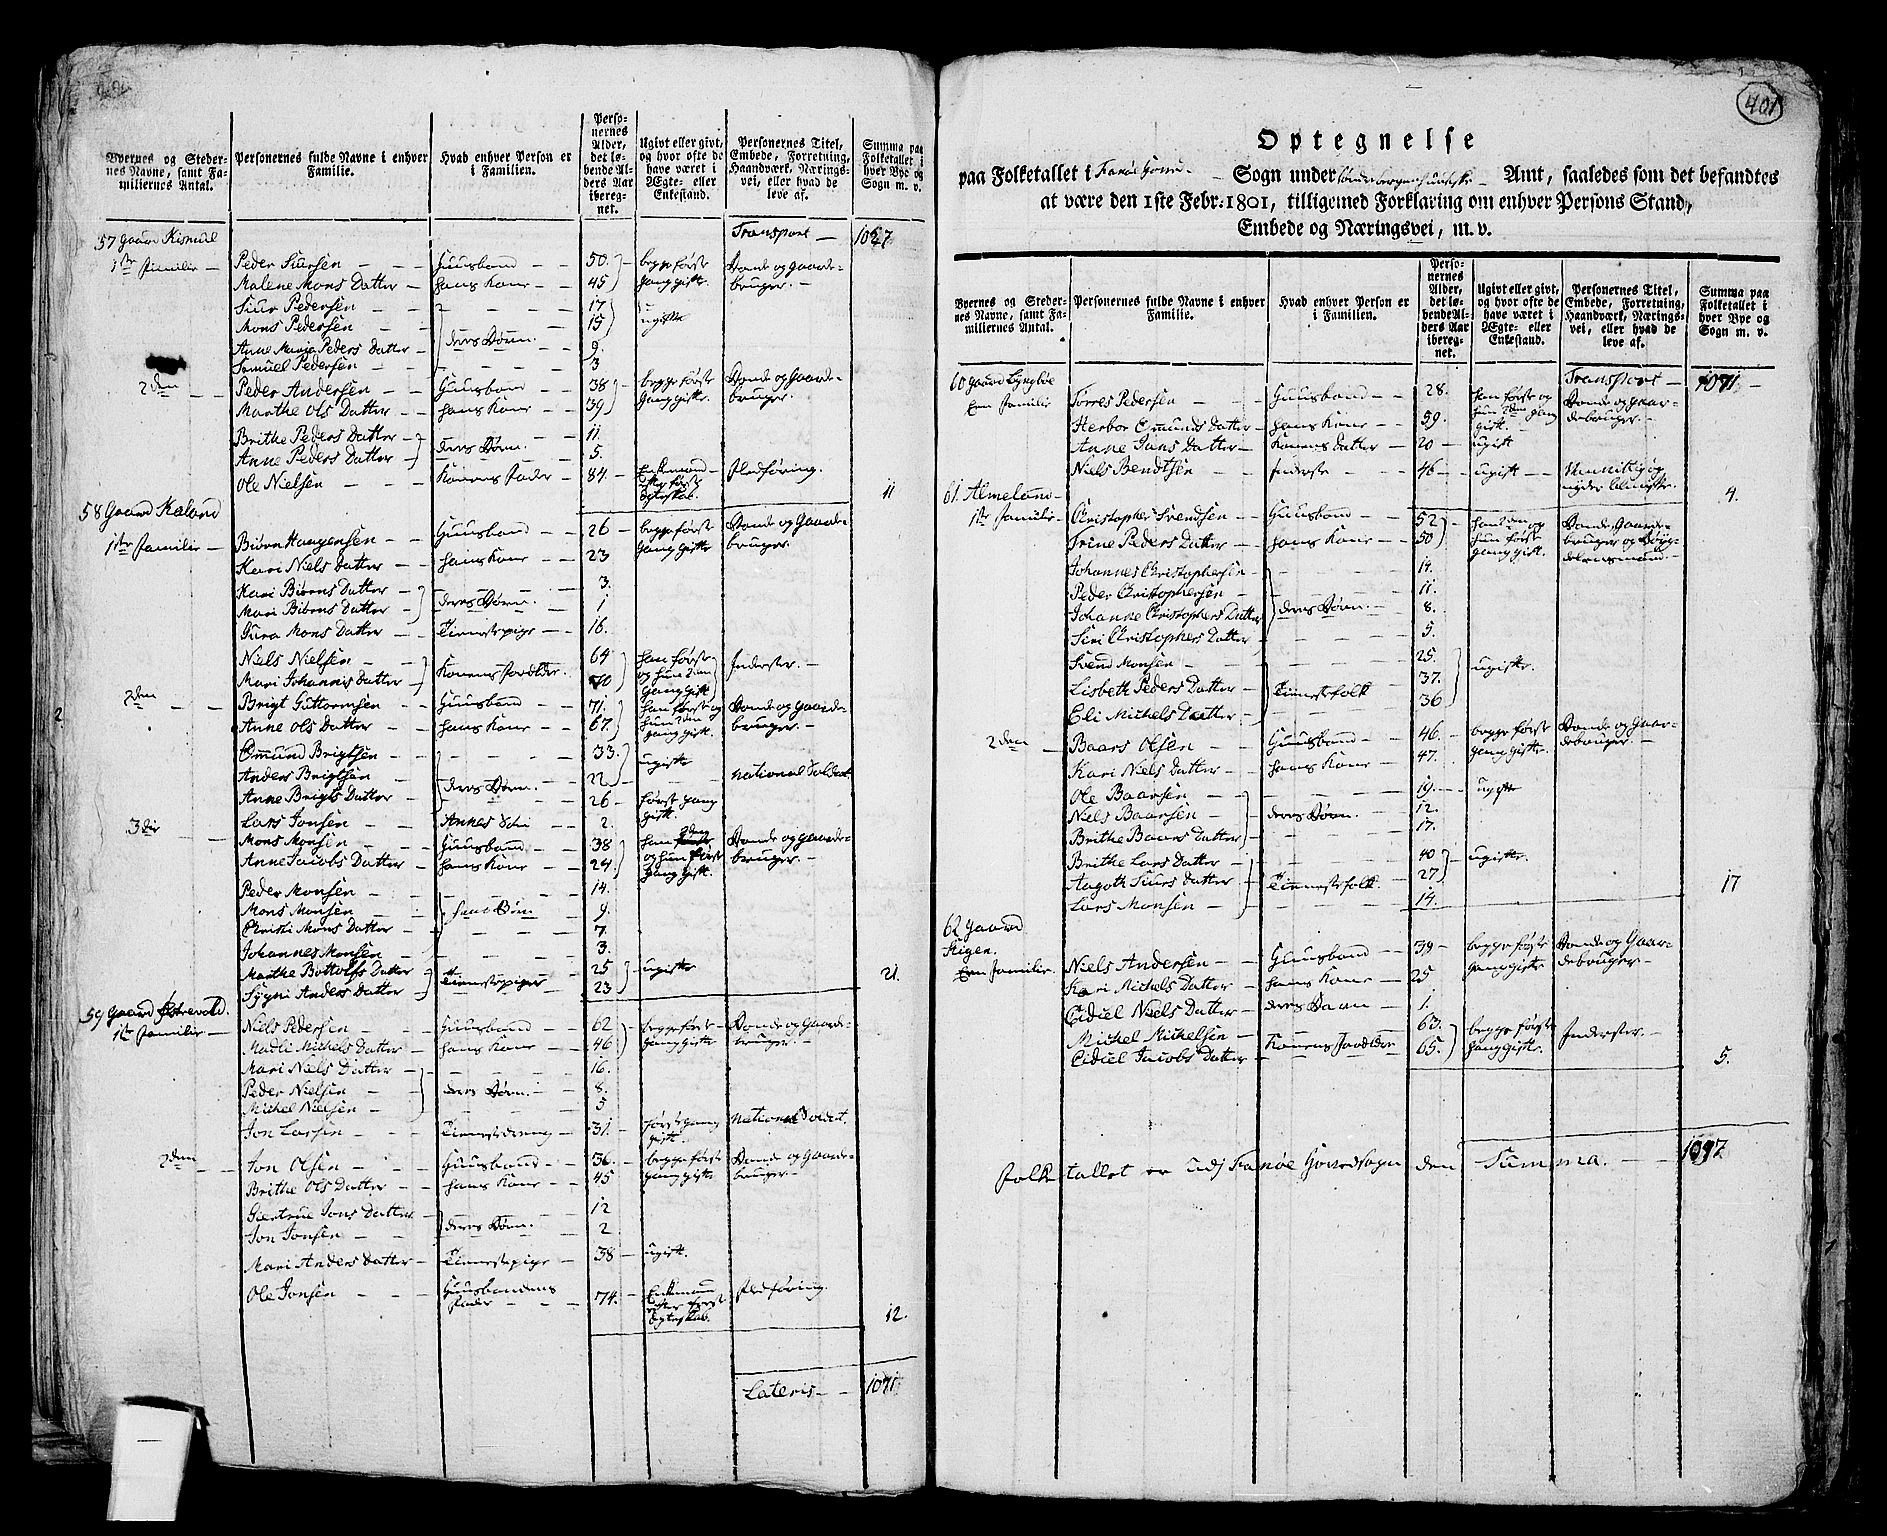 Byernes og Stedernes Navne, samt Familiernes Antal.
Personernes fulde Navne i enhver Familie.
Hvad enhver Person er i Familien.
Personernes Alder, det løbende Alders Aar iberegnet.
Ugivt eller givt, og hvor ofte de have været i Ægte- eller Enkestand.
Personernes Titel, Embede, Forretning, Haandværk, Næringsvei, eller hvad de leve af.
Summa paa Folketallet i hver Bye og Sogn m. v.
Transport —
57 Gaard Kismul
1ste Familie — Peder Siursen — Huusbond — 50. begge første Bonde og Gaarde-
Malene Mons Datter — hans Kone — 45 gang gifte bruger. —
Siur Pedersen — 17
Mons Pedersen — 15 ugifte
Anne Marja Peders Datter deres Børn. 9.
Samuel Pedersen — 3
2den Peder Andersen — Huusbond — 38 begge første Bonde og Gaarde-
Marthe Ols Datter — hans Kone — 39 Gang gifte bruger.
Brithe Peders Datter — deres Børn. 11.
Anne Peders Datter — 5.
Ole Nielsen — Konens Fader — 84. Enkemand Ledføring.
efter første
Egteskab. 11
58 Gaard Kaland
1ste Familie — Biørn Haagensen — Huusbond — 26 — begge første Bonde og Gaarde-
Kari Niels Datter — hans Kone — 23 gang gifte bruger.
Kari Biørns Datter — 3.
Mari Biørns Datter — deres Børn. 1
Gura Mons Datter — Tienestepige — 16.
Niels Nielsen — 64 han første Inderster. —
Mari Johannis Datter — Konens Forældre. 70 og hun 2den
Gang gift
2den Brigt Guttormsen — Huusbond — 71. han første og Bonde og Gaarde-
Anne Ols Datter — hans Kone — 67. hun 2den bruger. —
gang gift.
Ommund Brigtsen — 33. ugifte
Anders Brigtsen — deres Børn. 22 — National Soldat
Anne Brigts Datter — 26 — først gang
gift.
Lars Jonsen — Annes Søn — 2.
3die Mons Monsen — Huusbond — 38 han 2den Bonde og Gaarde-
Anne Jacobs Datter — hans Kone — 24. og hun første bruger. —
gang gift.
Peder Monsen — 14.
Mons Monsen — hans Børn — 9.
Christi Mons Datter — 7.
Johannes Monsen — 3.
Marthe Bottolfs Datter — Tienestepiger — 25 ugifte
Sygni Anders Datter — 23 21.
59 Gaard Østrevold.
1ste Familie — Niels Pedersen — Huusbond — 62 begge første — Bonde og Gaarde-
Madli Michels Datter — hans Kone — 46 gang gifte bruger. —
Mari Niels Datter — 16.
Peder Nielsen — deres Børn. — 8.
Michel Nielsen — 5
Jon Larsen — Tienestedreng — 31. først gang National Soldat.
gift.
2den Jon Olsen — Huusbond — 36. begge første Bonde og Gaarde-
Brithe Ols Datter — hans Kone — 45 gang gifte bruger —
Giertrue Jons Datter — 12
Jon Jonsen — deres Børn. 2
Mari Anders Datter — Tienestepige — 38 — ugift.
Ole Jonsen — Huusbondens
Fader — 74. Enkemand Ledføring.
efter først
Egteskab. 12.
Lateris — 1071
401
Optegnelse
paa Folketallet i Fanøe Hoved — Sogn under Søndrebergenhuusiske — Amt, saaledes som det befandtes
at være den 1ste Febr: 1801, tilligemed Forklaring om enhver Persons Stand,
Embede og Næringsvei, m. v.
Byernes og Stedernes Navne, samt Familiernes Antal.
Personernes fulde Navne i enhver Familie.
Hvad enhver Person er i Familien.
Personernes Alder, det løbende Alders Aar iberegnet.
Ugivt eller givt, og hvor ofte de have været i Ægte- eller Enkestand.
Personernes Titel, Embede, Forretning, Haandværk, Næringsvei, eller hvad de leve af.
Summa paa Folketallet i hver Bye og Sogn m. v.
Transport — 1071 —
60 Gaard Lyngbøe
Een Familie Torres Pedersen — Huusbond — 28. han første og Bonde og Gaar-
Herbor Omunds Datter — hans Kone — 59. hun 2den gang debruger. —
gift.
Anne Jans Datter — Konens Datter — 20 — ugift
Niels Bendtsen — Inderste — 46 — ugift —
nyder Almisse. 4.
61. Almeland —
1ste Familie — Christopher Svendsen — Huusbond — 52 han 2den og Bonde Gaarde-
Trine Peders Datter — hans Kone — 50 hun første bruger og Bøyg-
gang gift. delensmand —
Johannes Christophersen — 14.
Peder Christophersen — 11.
Johanne Christophers Datter — deres Børn. — 8.
Siri Christophers Datter — 5.
Svend Monsen — 25. ugifte.
Lisbeth Peders Datter — Tienestefolk 37.
Eli Michels Datter. — 36
2den — Baars Olsen — Huusbond — 46. begge første Bonde og Gaar-
Kari Niels Datter — hans Kone — 47. gang gifte. debruger. —
Ole Baarsen — 19. — ugifte
Niels Baarsen — deres Børn — 12.
Brithe Baars Datter — 17.
Brithe Lars Datter — 40 ugifte.
Aagoth Siurs Datter — Tienestefolk. 27
Lars Monsen — 14. 17
62 Gaard
Stigen.
Een Familie. Niels Andersen — Huusbond — 39 — begge første Bonde og Gaar-
Kari Michels Datter — hans Kone — 25 gang gifte debruger —
Eidiel Niels Datter — deres Barn — 1.
Michel Michelsen — 63. begge første Inderster. —
Eidiel Jacobs Datter — Konens Forældre 65. gang gifte. 5.
Folketallet er udj Fanøe Hovedsogn den Summa. — 1097